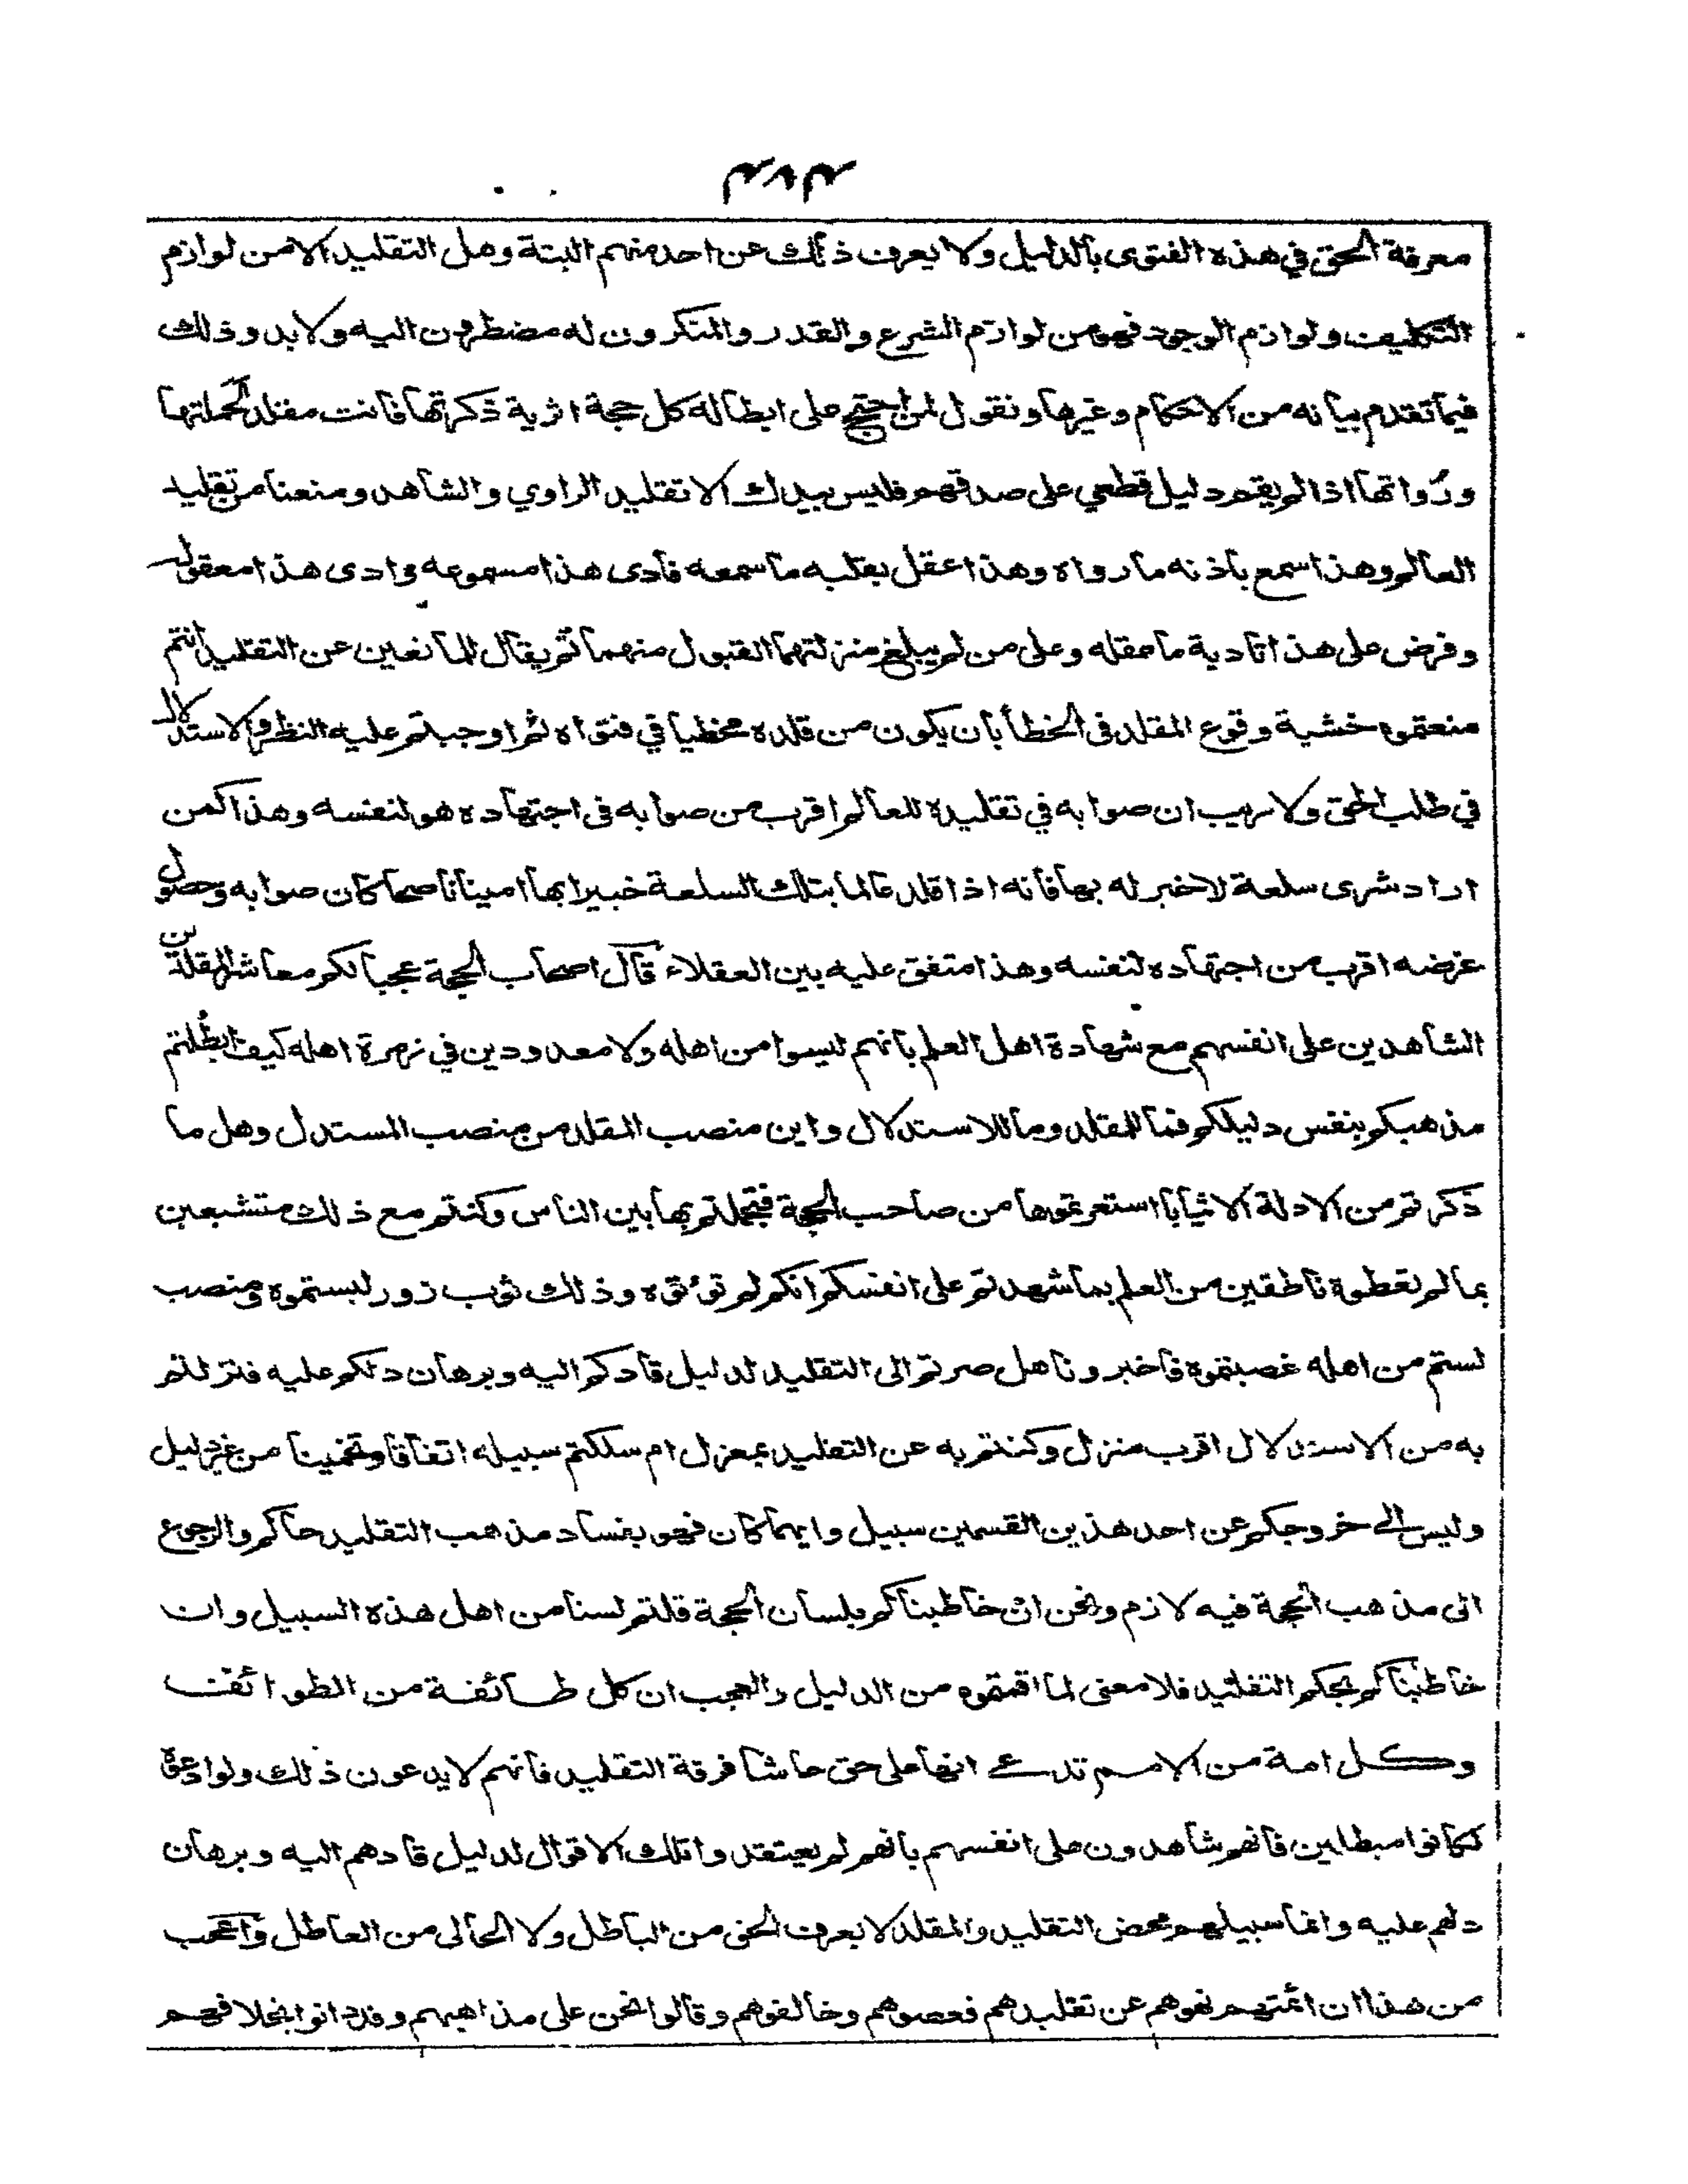 معرفة الحق في هذه الفتوى بالدليل ولا يعرف ذلك عن احد منهم البتة وهل التقليد الا من لوازم
التكليف ولوازم الوجود فهو من لوازم الشرع والقدر والمنكرون له مضطرون اليه ولا بد وذلك
فيما تقدم بيانه من الاحكام وغيرها ونقول لمن احتج على ابطاله كل حجة اثرية ذكرتها فانت مقلد لحملتها
ورواتها اذا لم يقم دليل قطعي على صدقهم فليس بيدك الا تقليد الراوي والشاهد ومنعنا من تقليد
العالم وهذا سمع باذنه ما رواه وهذا عقل بقلبه ما سمعه فادى هذا مسموعه وادى هذا معقوله
وفرض على هذا تادية ما عقله وعلى من لم يبلغ منزلتهما القبول منهما ثم يقال للمانعين عن التقليد انتم
منعتموه خشية وقوع المقلد في الخطأ بان يكون من قلده مخطيا في فتواه ثم اوجبتم عليه النظر والاستدلال
في طلب الحق ولا ريب ان صوابه في تقليده للعالم اقرب من صوابه في اجتهاده هو لنفسه وهذا كمن
اراد شرى سلعة لا خبر له بها فانه اذا قلد عالما بتلك السلعة خبيرا بها امينا ناصحا كان صوابه وحصول
غرضه اقرب من اجتهاده لنفسه وهذا متفق عليه بين العقلاء قال اصحاب الحجة عجبا لكم معاشر المقلدين
الشاهدين على انفسهم مع شهادة اهل العلم بانهم ليسوا من اهله ولا معدودين في زمرة اهله كيف ابطلتم
مذهبكم بنفس دليلكم فما للمقلد وما للاستدلال واين منصب المقلد من منصب المستدل وهل ما
ذكرتم من الادلة الا ثيابا استعرتموها من صاحب الحجة فتجملتم بها بين الناس وكنتم مع ذلك متشبعين
بما لم تعطوه ناطقين من العلم بما شهدتم على انفسكم انكم لم تؤتوه وذلك ثوب زور لبستموه ومنصب
لستم من اهله غصبتموه فاخبرونا هل صرتم الى التقليد لدليل قادكم اليه وبرهان دلكم عليه فنزلتم
به من الاستدلال اقرب منزل وكنتم به عن التقليد بمعزل ام سلكتم سبيله اتفاقا وتخمينا من غير دليل
وليس الى خروجكم عن احد هذين القسمين سبيل وايهما كان فهو بفساد مذهب التقليد حاكم والرجوع
الى مذهب الحجة فيه لازم ونحن ان خاطبناكم بلسان الحجة قلتم لسنا من اهل هذه السبيل وان
خاطبناكم بحكم التقليد فلا معنى لما اقمتموه من الدليل والعجب ان كل طائفة من الطوائف
وكل امة من الامم تدعى انها على حق حاشا فرقة التقليد فانهم لا يدعون ذلك ولو ادعوه
لكانوا مبطلين فانهم شاهدون على انفسهم بانهم لم يعتقدوا تلك الاقوال لدليل قادهم اليه وبرهان
دلهم عليه وانما سبيلهم محض التقليد والمقلد لا يعرف الحق من الباطل ولا الحالي من العاطل واعجب
من هذا ان ائمتهم نهوهم عن تقليدهم فعصوهم وخالفوهم وقالوا نحن على مذاهبهم وقد دانوا بخلافهم